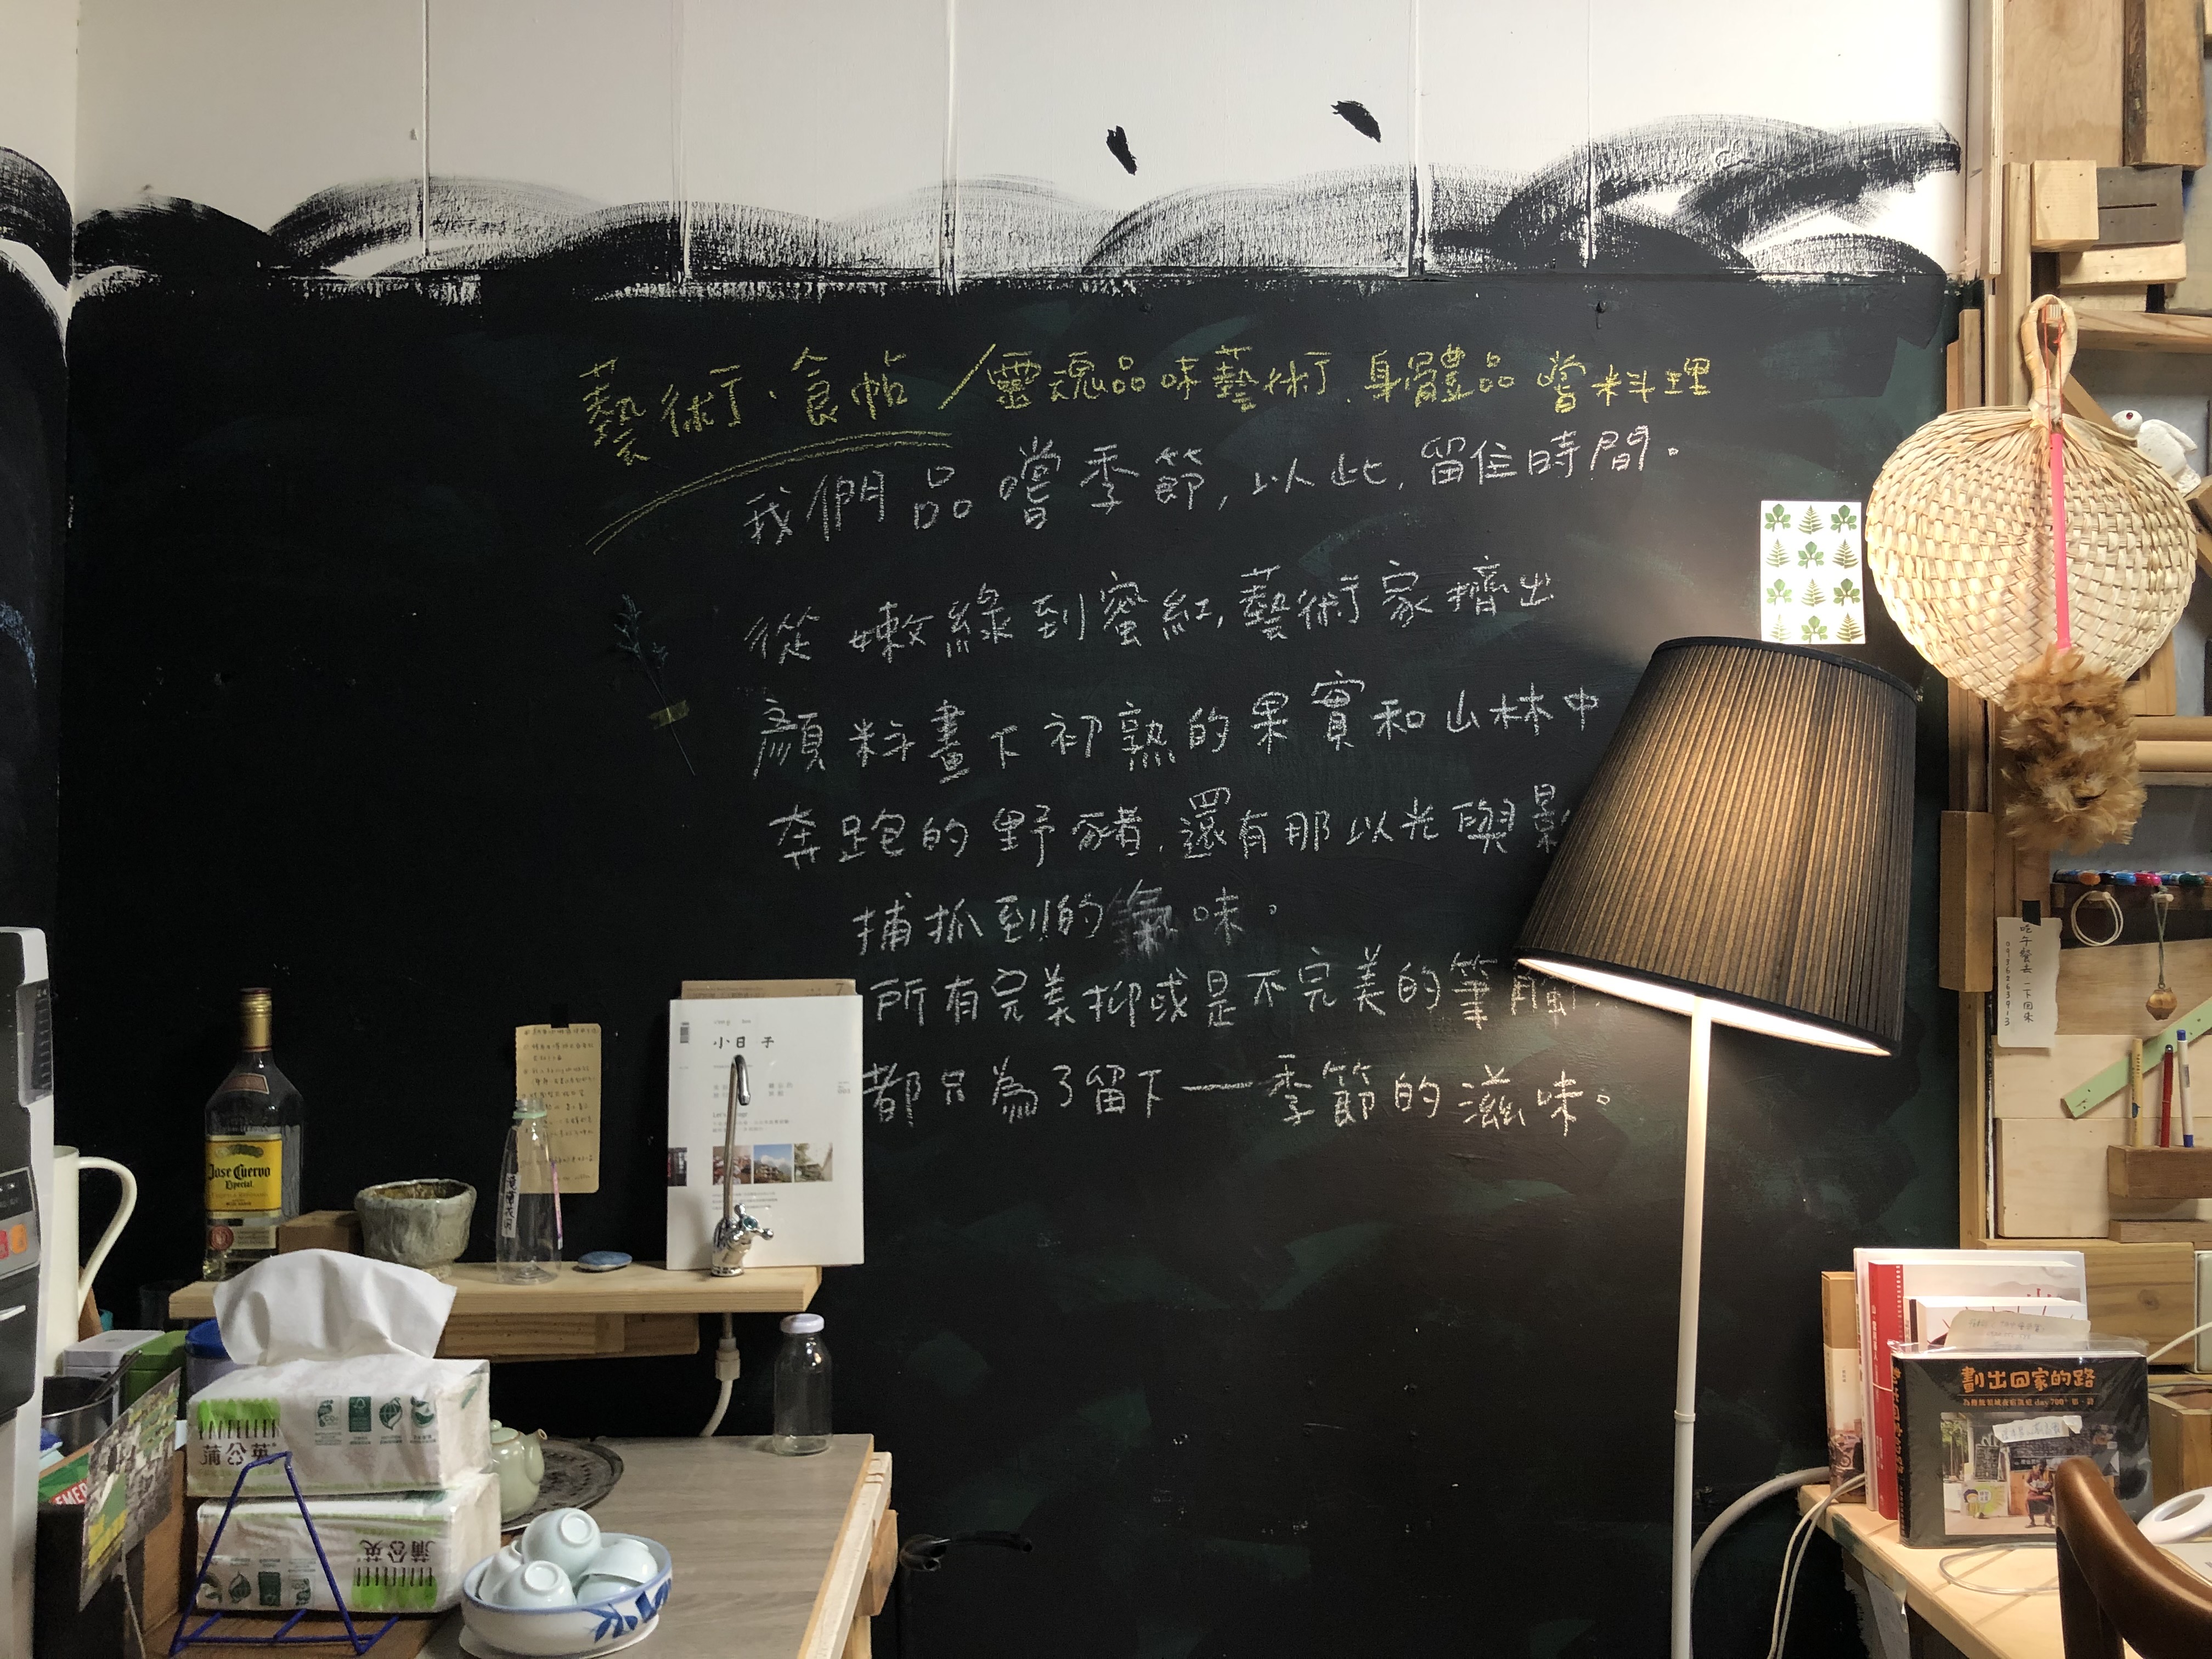 藝術・食帖／靈魂品味藝術．身體品嚐料理
我們品嚐季節，以此，留住時間。
從嫩綠到蜜紅，藝術家擠出
顏料畫下初熟的果實和山林中
奔跑的野豬，還有那以光與影
捕抓到的氣味。
所有完美抑或是不完美的筆觸
都只為了留下一季節的滋味。
小日子
Jose Cuervo
Especial
蒲公英
蒲公英
吃午餐去 一下回來
劃出回家的路